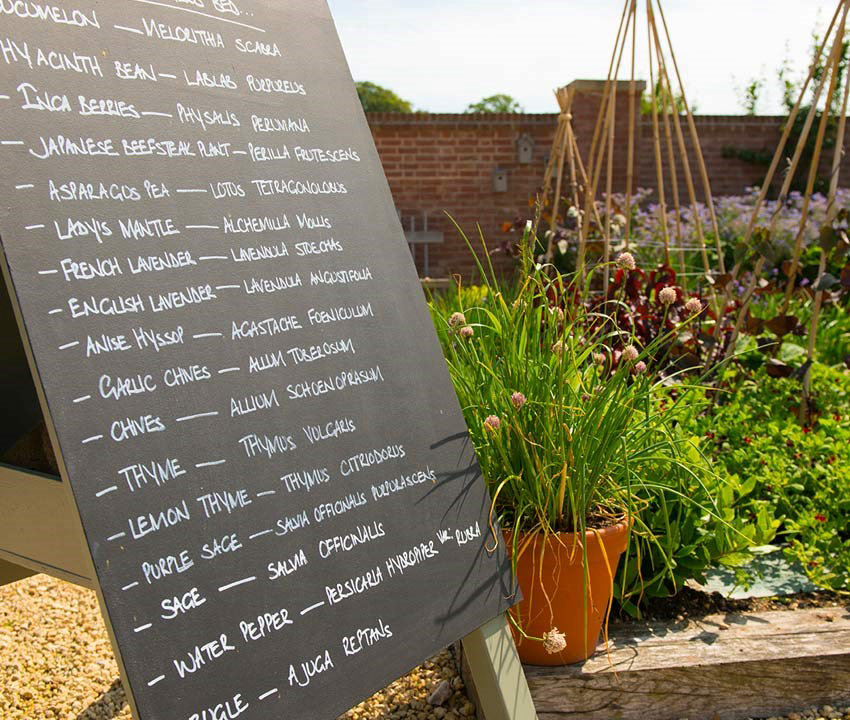 BED...
CUCUMELON — MELORITHIA SCABRA
HYACINTH BEAN — LABLAB PURPUREUS
– INCA BERRIES — PHYSALIS PERUVIANA
– JAPANESE BEEFSTEAK PLANT – PERILLA FRUTESCENS
– ASPARAGUS PEA — LOTUS TETRAGONOLOBUS
– LADY'S MANTLE — ALCHEMILLA MOLLIS
– FRENCH LAVENDER — LAVENDULA STOECHAS
– ENGLISH LAVENDER — LAVENDULA ANGUSTIFOLIA
– ANISE HYSSOP — AGASTACHE FOENICULUM
– GARLIC CHIVES – ALLIUM TUBEROSUM
– CHIVES — ALLIUM SCHOENOPRASUM
– THYME — THYMUS VULGARIS
– LEMON THYME – THYMUS CITRIODORUS
– PURPLE SAGE – SALVIA OFFICINALIS PURPURASCENS
– SAGE — SALVIA OFFICINALIS
– WATER PEPPER — PERSICARIA HYDROPIPER Var. RUBRA
BUGLE – AJUGA REPTANS